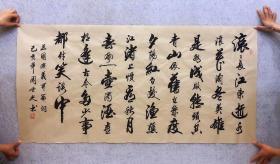 滚々長江東逝水
浪花淘盡英雄
是非成敗轉頭空
青山依舊在幾度
夕陽紅白髮漁樵
江渚上慣看秋月
春風一壺濁酒喜
相逢古今多少事
都付笑談中
三國演義開篇詞
己亥年